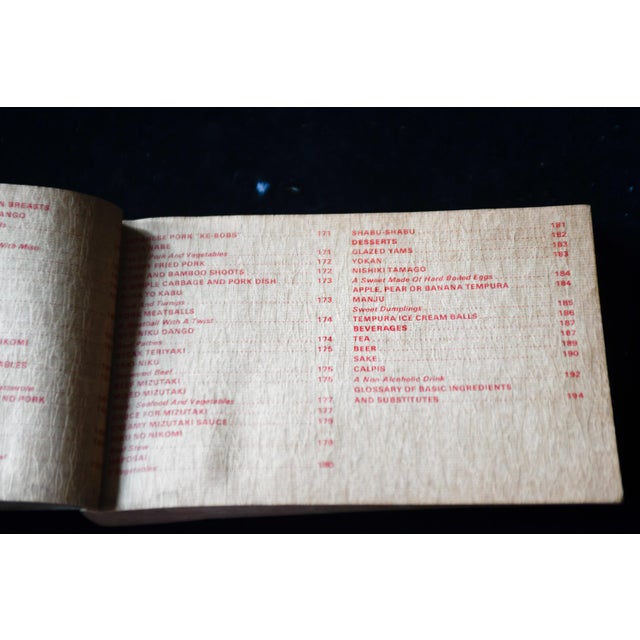 N BREASTS
ANGO
With Miso
NIKOMI
ABLES
Casserole
ND PORK
ESE PORK "KE-BOBS" 171
NABE
Pork And Vegetables 171
FRIED PORK 172
AND BAMBOO SHOOTS 172
PLE CABBAGE AND PORK DISH 173
YO KABU
And Turnips 173
MEATBALLS
tball With A Twist 174
NIKU DANGO
Patties 174
AK TERIYAKI 175
O-NIKU
ered Beef 175
MIZUTAKI 175
ED MIZUTAKI
Seafood And Vegetables 177
CE FOR MIZUTAKI 177
AMY MIZUTAKI SAUCE 179
RI NO NIKOMI
Stew 179
POSAI
getables 180
SHABU-SHABU 181
DESSERTS 182
GLAZED YAMS 183
YOKAN 183
NISHIKI TAMAGO
A Sweet Made Of Hard Boiled Eggs 184
APPLE, PEAR OR BANANA TEMPURA 184
MANJU
Sweet Dumplings 185
TEMPURA ICE CREAM BALLS 186
BEVERAGES 187
TEA 187
BEER 189
SAKE 190
CALPIS
A Non-Alcoholic Drink 192
GLOSSARY OF BASIC INGREDIENTS
AND SUBSTITUTES 194